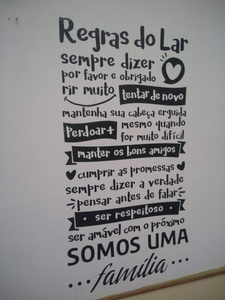 Regras do Lar
sempre dizer
por favor e obrigado
rir muito tentar de novo
mantenha sua cabeça erguida
Perdoar+ mesmo quando
for muito difícil
manter os bons amigos
cumprir as promessas
sempre dizer a verdade
pensar antes de falar
ser respeitoso
ser amável com o próximo
SOMOS UMA
...família...